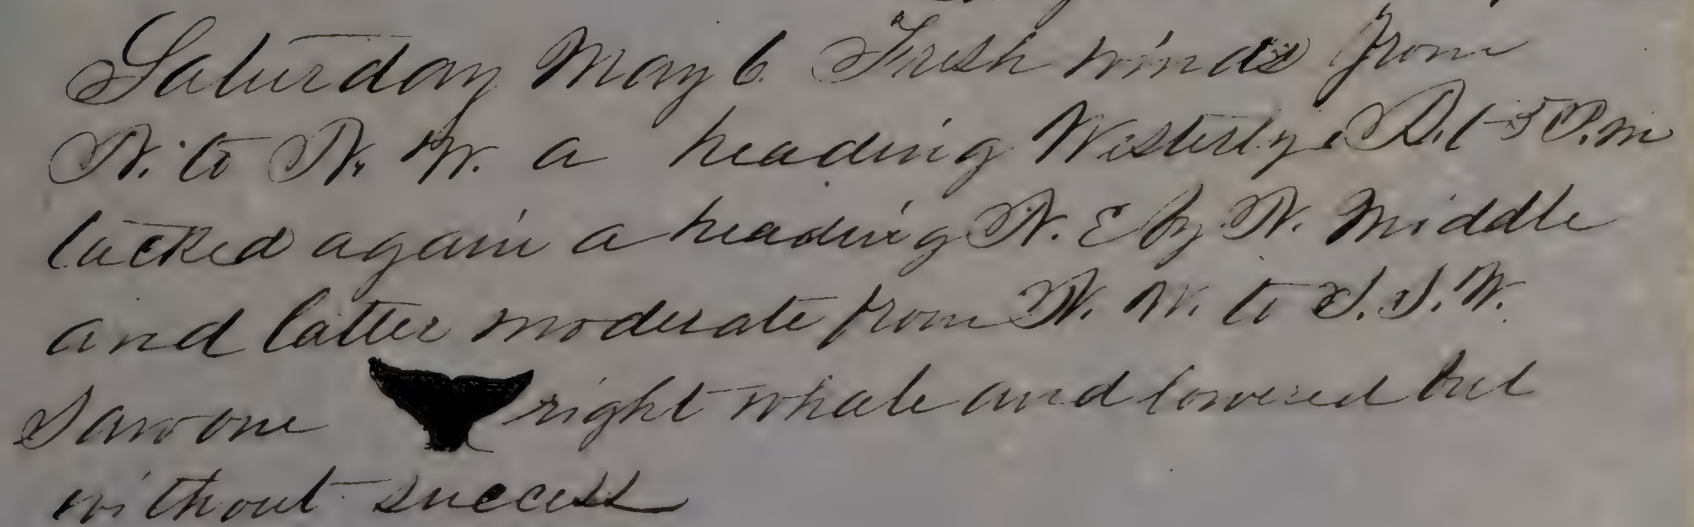 Saturday May 6. Fresh winds from
N. to N. W. a heading Westerly. At 5 P.m
tacked again a heading N. E by N. Middle
and latter moderate from N. W. to S. S. W.
Saw one right whale and lowered but
without success